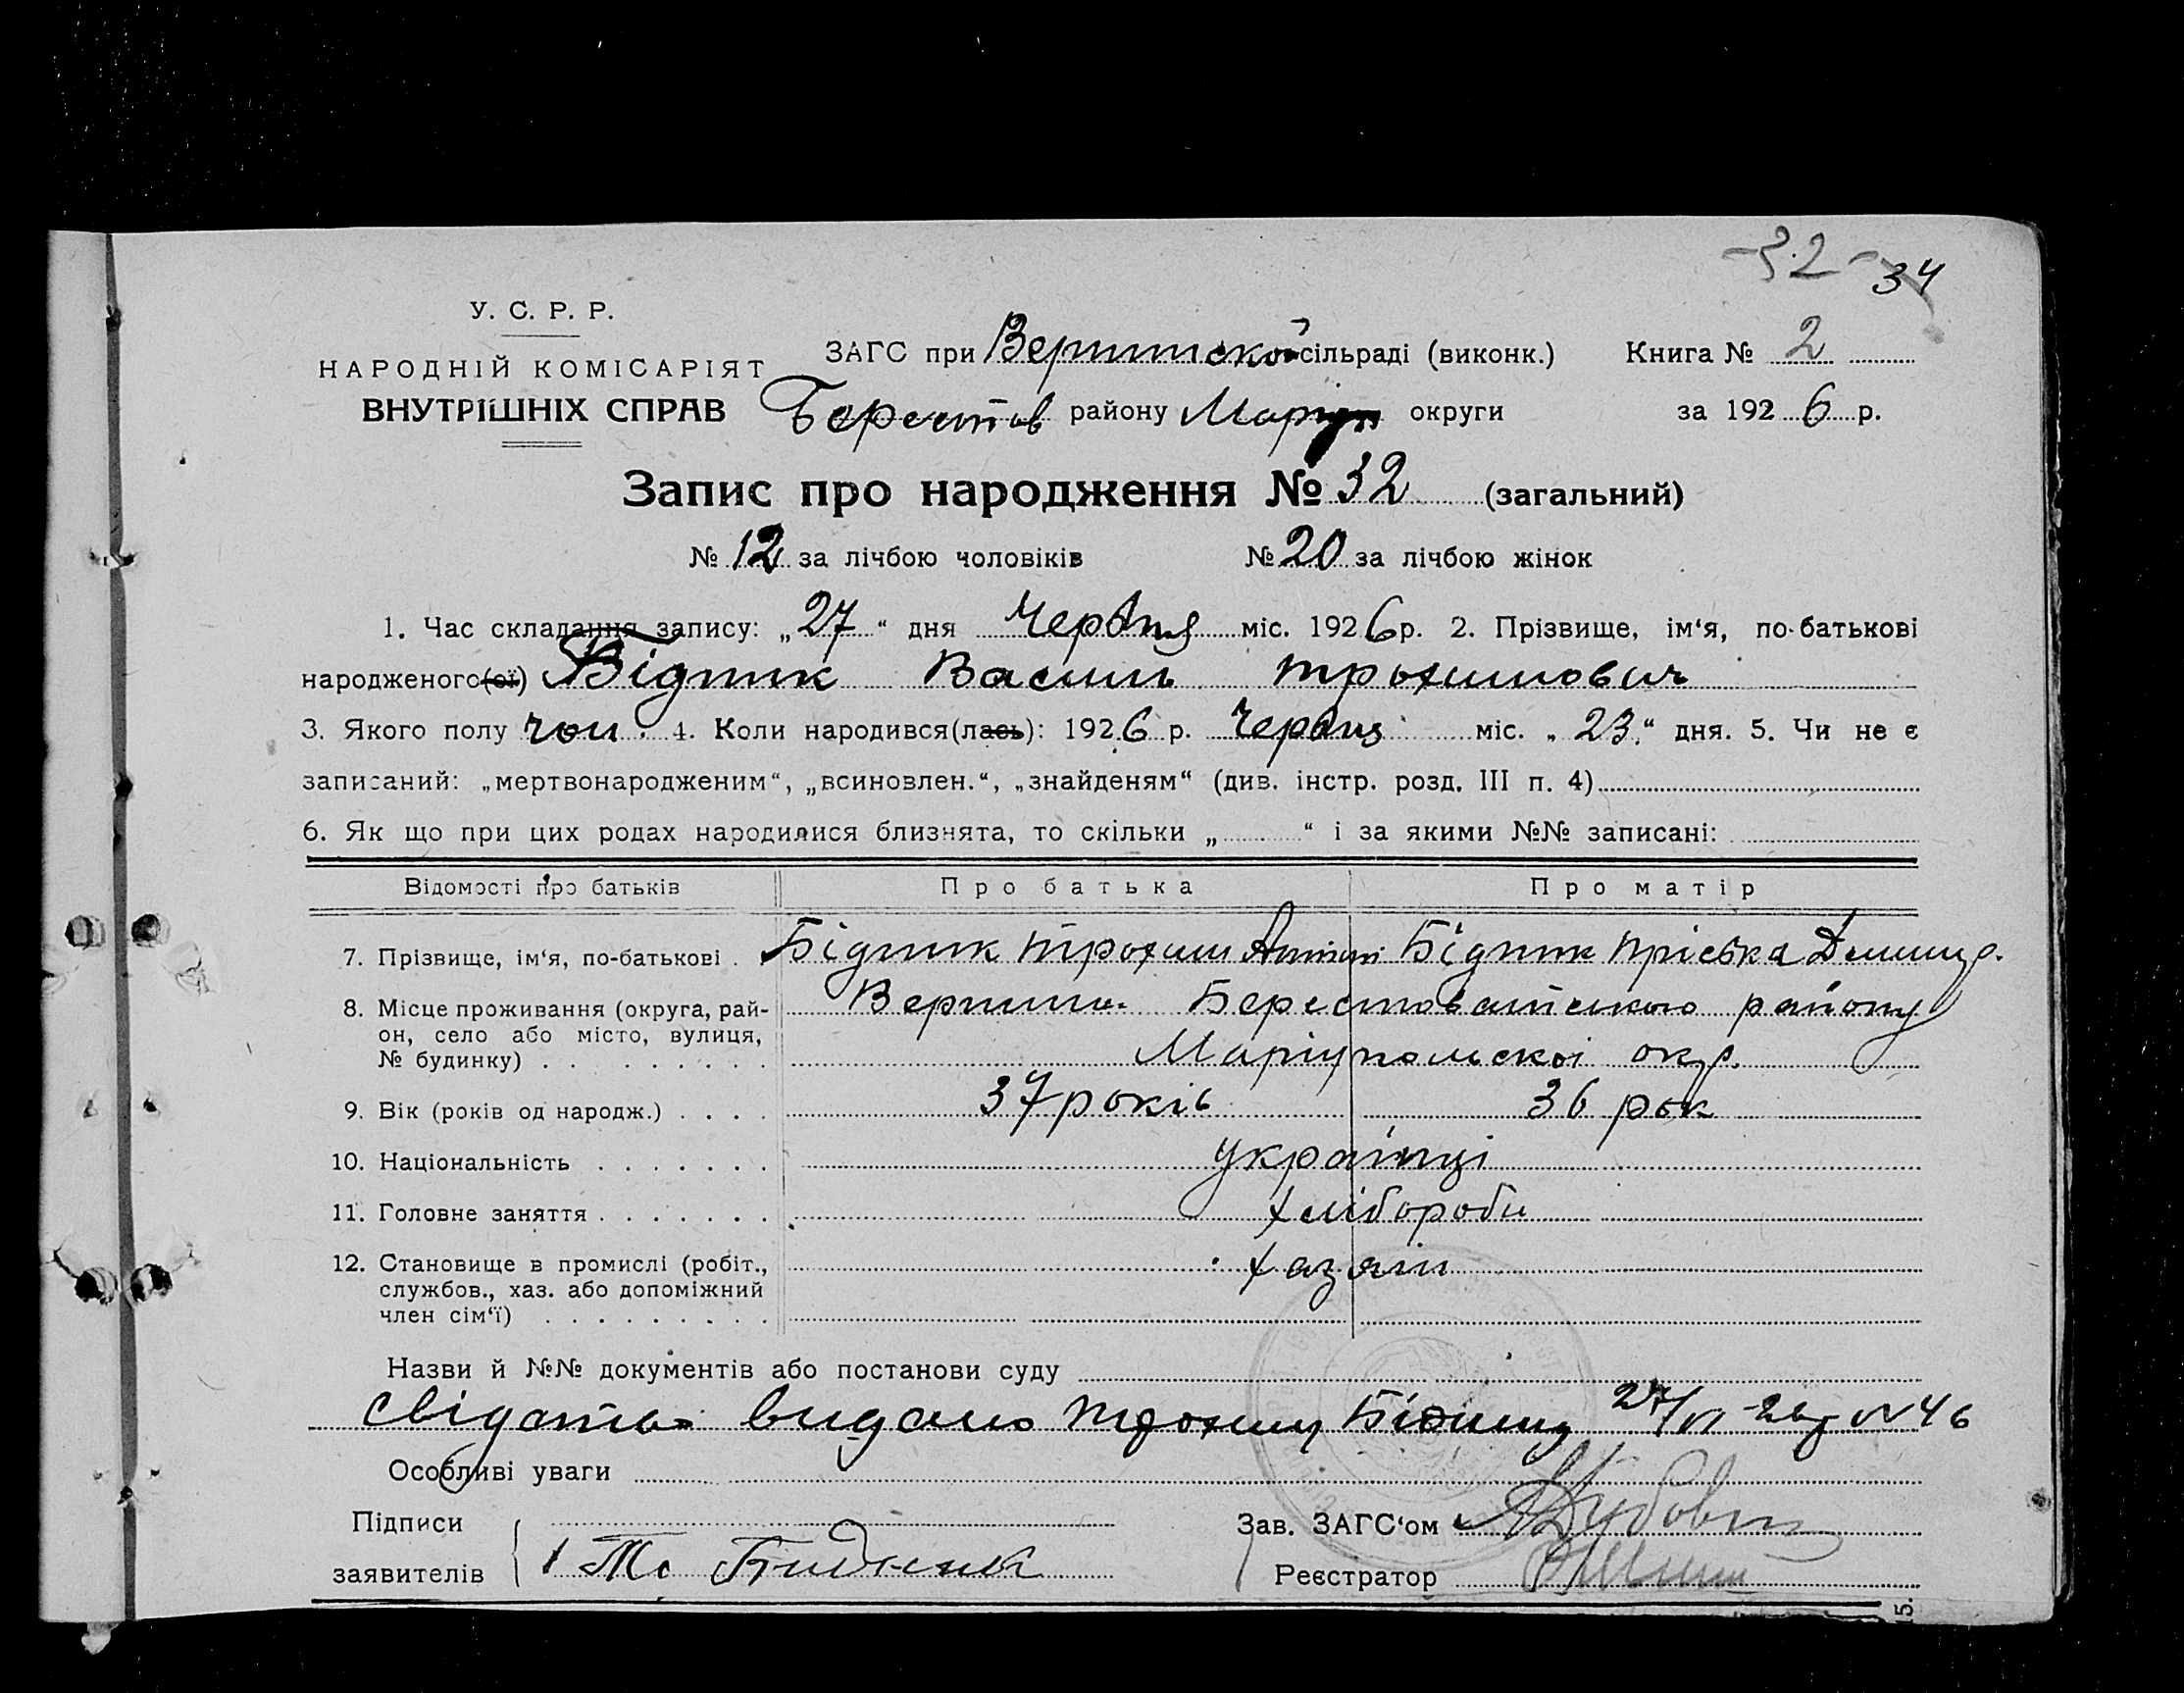 -32- 34
У. С. Р. Р.
НАРОДНІЙ КОМІСАРІЯТ
ВНУТРІШНІХ СПРАВ
ЗАГС при сільраді (виконк.) Книга № 2
Берестов району Маріуп округи за 1926 р.
Запис про народження № 32 (загальний)
№ 12 за лічбою чоловіків № 20 за лічбою жінок
1. Час складання запису: „27“ дня Червня міс. 1926 р. 2. Прізвище, ім‘я, по-батькові
народженого(ої) Бідник Василь Трохимович
3. Якого полу чол. 4. Коли народився(лась): 1926 р. Червня міс. „23.“ дня. 5. Чи не є
записаний: „мертвонародженим“, „всиновлен.“, „знайденям“ (див. інстр. розд. III п. 4)
6. Як що при цих родах народилися близнята, то скільки „ “ і за якими №№ записані:
Відомості про батьків Про батька Про матір
7. Прізвище, ім‘я, по-батькові . Бідник Трохим Бідник Пріська
8. Місце проживання (округа, рай- Вершина Берестоватського району
он, село або місто, вулиця, Маріупольскоі окр.
№ будинку) . . . . . . . . .
9. Вік (років од народж.) . . . . 37 років 36 рок
10. Національність . . . . . . . українці
11. Головне заняття . . . . . . . хлібороби
12. Становище в промислі (робіт., хазяін
службов., хаз. або допоміжний
член сім‘ї) . . . . . . . . .
Назви й №№ документів або постанови суду
видано Трохиму Біднику 27/VI-26р №46
Особливі уваги
Підписи Зав. ЗАГС‘ом
заявителів Бидник Реєстратор
15.